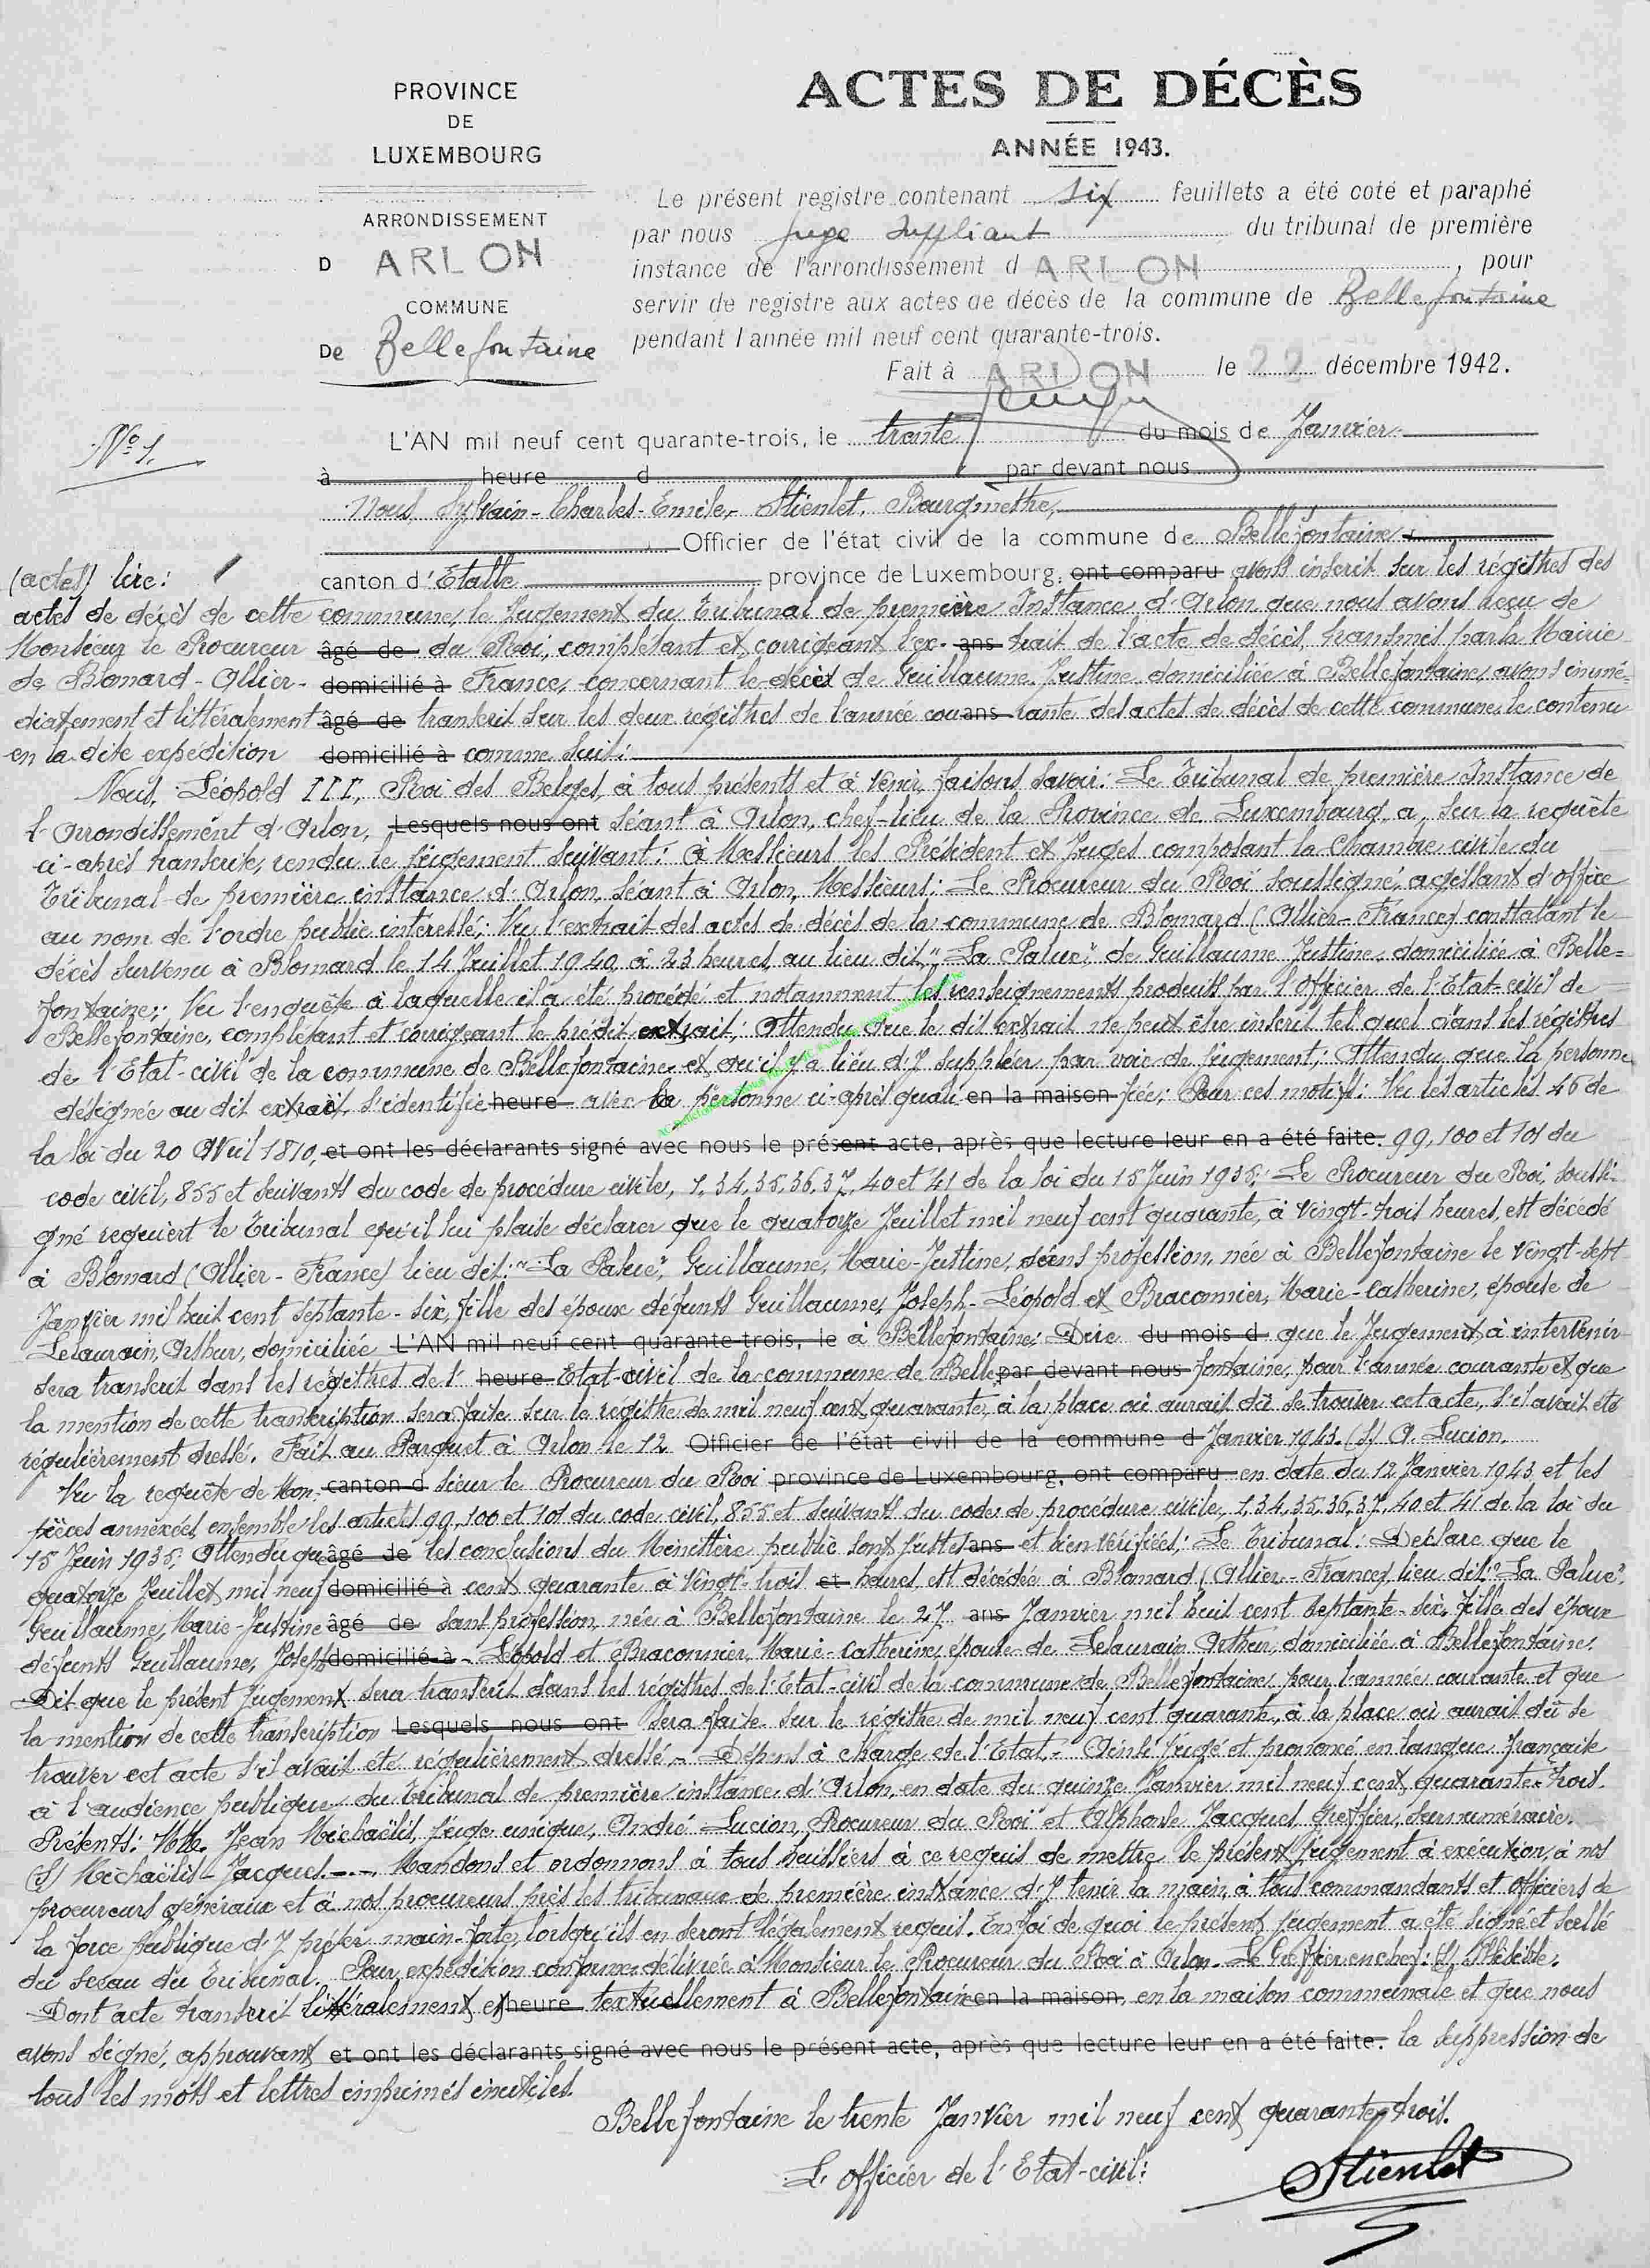 PROVINCE
DE
LUXEMBOURG
ARRONDISSEMENT
D ARLON
COMMUNE
De Bellefontaine
ACTES DE DÉCÈS
ANNÉE 1943.
Le présent registre contenant six feuillets a été coté et paraphé
par nous juge suppléant du tribunal de première
instance de l'arrondissement d ARLON, pour
servir de registre aux actes de décès de la commune de Bellefontaine
pendant l'année mil neuf cent quarante-trois.
Fait à ARLON le 22 décembre 1942.
N° 1.
L'AN mil neuf cent quarante-trois, le trente du mois de Janvier
à heure d par devant nous
Nous, Sylvain-Charles-Emile, Stienlet, Bourgmestre,
Officier de l'état civil de la commune de Bellefontaine
(actes) lire: canton d'Etalle province de Luxembourg, ont comparu avons inscrit sur les régistres des
actes de décès de cette commune, le Jugement du Tribunal de première Instance d'Arlon que nous avons reçu de
Monsieur le Procureur âgé de du Roi, complétant et corrigeant l'ex- ans trait de l'acte de décès, transmis par la Mairie
de Blomard-Allier- domicilié à France, concernant le décès de Guillaume Justine domiciliée à Bellefontaine, avons immé-
diatement et littéralement âgé de transcrit sur les deux régistres de l'année cou ans rante des actes de décès de cette commune, le contenu
en la dite expédition domicilié à comme suit:
Nous, Léopold III, Roi des Belges, à tous présents et à venir, faisons savoir: Le Tribunal de première Instance de
l'Arrondissement d'Arlon, Lesquels nous ont séant à Arlon, chef-lieu de la Province de Luxembourg, a, sur la requête
ci-après transcrite, rendu le jugement suivant: à Messieurs les Président et Juges composant la Chambre civile du
Tribunal de première instance d'Arlon, séant à Arlon, Messieurs: Le Procureur du Roi soussigné, agissant d'office
au nom de l'ordre public intéressé; Vu l'extrait des actes de décès de la commune de Blomard (Allier-France) constatant le
décès survenu à Blomard le 14 Juillet 1940, à 23 heures, au lieu dit "La Palue", de Guillaume Justine, domiciliée à Belle=
fontaine; Vu l'enquête à laquelle il a été procédé et notamment les renseignements produits par l'Officier de l'Etat-civil de
Bellefontaine, complétant et corrigeant le prédit extrait; Attendu que le dit extrait ne peut être inscrit tel quel dans les régistres
de l'Etat-civil de la commune de Bellefontaine et qu'il y a lieu d'y suppléer par voie de jugement; Attendu que la personne
désignée au dit extrait s'identifie heure avec la personne ci-après quali en la maison fiée; Pour ces motifs: Vu les articles 46 de
la loi du 20 Avril 1810, et ont les déclarants signé avec nous le présent acte, après que lecture leur en a été faite. 99, 100 et 101 du
code civil, 855 et suivants du code de procédure civile, 1, 34, 35, 36, 37, 40 et 41 de la loi du 15 Juin 1935; Le Procureur du Roi, soussi-
gné requiert le Tribunal qu'il lui plaise déclarer que le quatorze Juillet mil neuf cent quarante, à vingt-trois heures, est décédé
à Blomard (Allier-France) lieu dit: "La Palue", Guillaume, Marie-Justine, sans profession, née à Bellefontaine le vingt-sept
Janvier mil huit cent septante-six, fille des époux défunts Guillaume, Joseph-Léopold et Braconnier, Marie-Catherine, épouse de
Lelaurain, Arthur, domiciliée L'AN mil neuf cent quarante-trois, le à Bellefontaine; Dire du mois d que le Jugement à intervenir
sera transcrit dans les régistres de l' heure Etat-civil de la commune de Belle par devant nous fontaine, pour l'année courante et que
la mention de cette transcription sera faite sur le registre de mil neuf cent quarante, à la place où aurait dû se trouver cet acte, s'il avait été
régulièrement dressé. Fait au Parquet à Arlon le 12 Officier de l'état civil de la commune d Janvier 1943. (S) A. Lucion.
Vu la requête de Mon- canton d sieur le Procureur du Roi province de Luxembourg, ont comparu en date du 12 Janvier 1943 et les
pièces annexées, ensemble les articles 99, 100 et 101 du code civil, 855 et suivants du code de procédure civile, 1, 34, 35, 36, 37, 40 et 41 de la loi du
15 Juin 1935; Attendu que âgé de les conclusions du Ministère public sont justes ans et bien vérifiées; Le Tribunal: Déclare que le
quatorze Juillet mil neuf domicilié à cent quarante à vingt-trois et heures, est décédée à Blomard (Allier-France) lieu dit: "La Palue",
Guillaume, Marie-Justine âgé de sans profession, née à Bellefontaine le 27 ans Janvier mil huit cent septante-six, fille des époux
défunts Guillaume, Joseph domicilié à - Léopold et Braconnier, Marie-Catherine, épouse de Lelaurain Arthur, domiciliée à Bellefontaine.
Dit que le présent Jugement sera transcrit dans les régistres de l'Etat-civil de la commune de Bellefontaine, pour l'année courante et que
la mention de cette transcription Lesquels nous ont sera faite sur le régistre de mil neuf cent quarante, à la place où aurait dû se
trouver cet acte s'il avait été régulièrement dressé. - Dépens à charge de l'Etat. - Ainsi jugé et prononcé en langue française
à l'audience publique du Tribunal de première instance d'Arlon, en date du quinze Janvier mil neuf cent quarante-trois.
Présents: MM. Jean Michaëlis, juge unique, André Lucion, Procureur du Roi et Alphonse Jacques, greffier, surnuméraire.
(S) Michaëlis - Jacques. - - - Mandons et ordonnons à tous huissiers à ce requis de mettre le présent jugement à exécution, à nos
procureurs généraux et à nos procureurs près les tribunaux de première instance d'y tenir la main, à tous commandants et officiers de
la force publique d'y prêter main-forte, lorsqu'ils en seront légalement requis. En foi de quoi le présent jugement a été signé et scellé
du sceau du Tribunal. Pour expédition conforme délivrée à Monsieur le Procureur du Roi à Arlon. Le Greffier en chef: (S)
Dont acte transcrit littéralement et heure textuellement à Bellefontaine en la maison, en la maison communale et que nous
avons signé, approuvant et ont les déclarants signé avec nous le présent acte, après que lecture leur en a été faite. la suppression de
tous les mots et lettres imprimés inutiles.
Bellefontaine le trente Janvier mil neuf cent quarante-trois.
L'officier de l'Etat-civil:
Stienlet